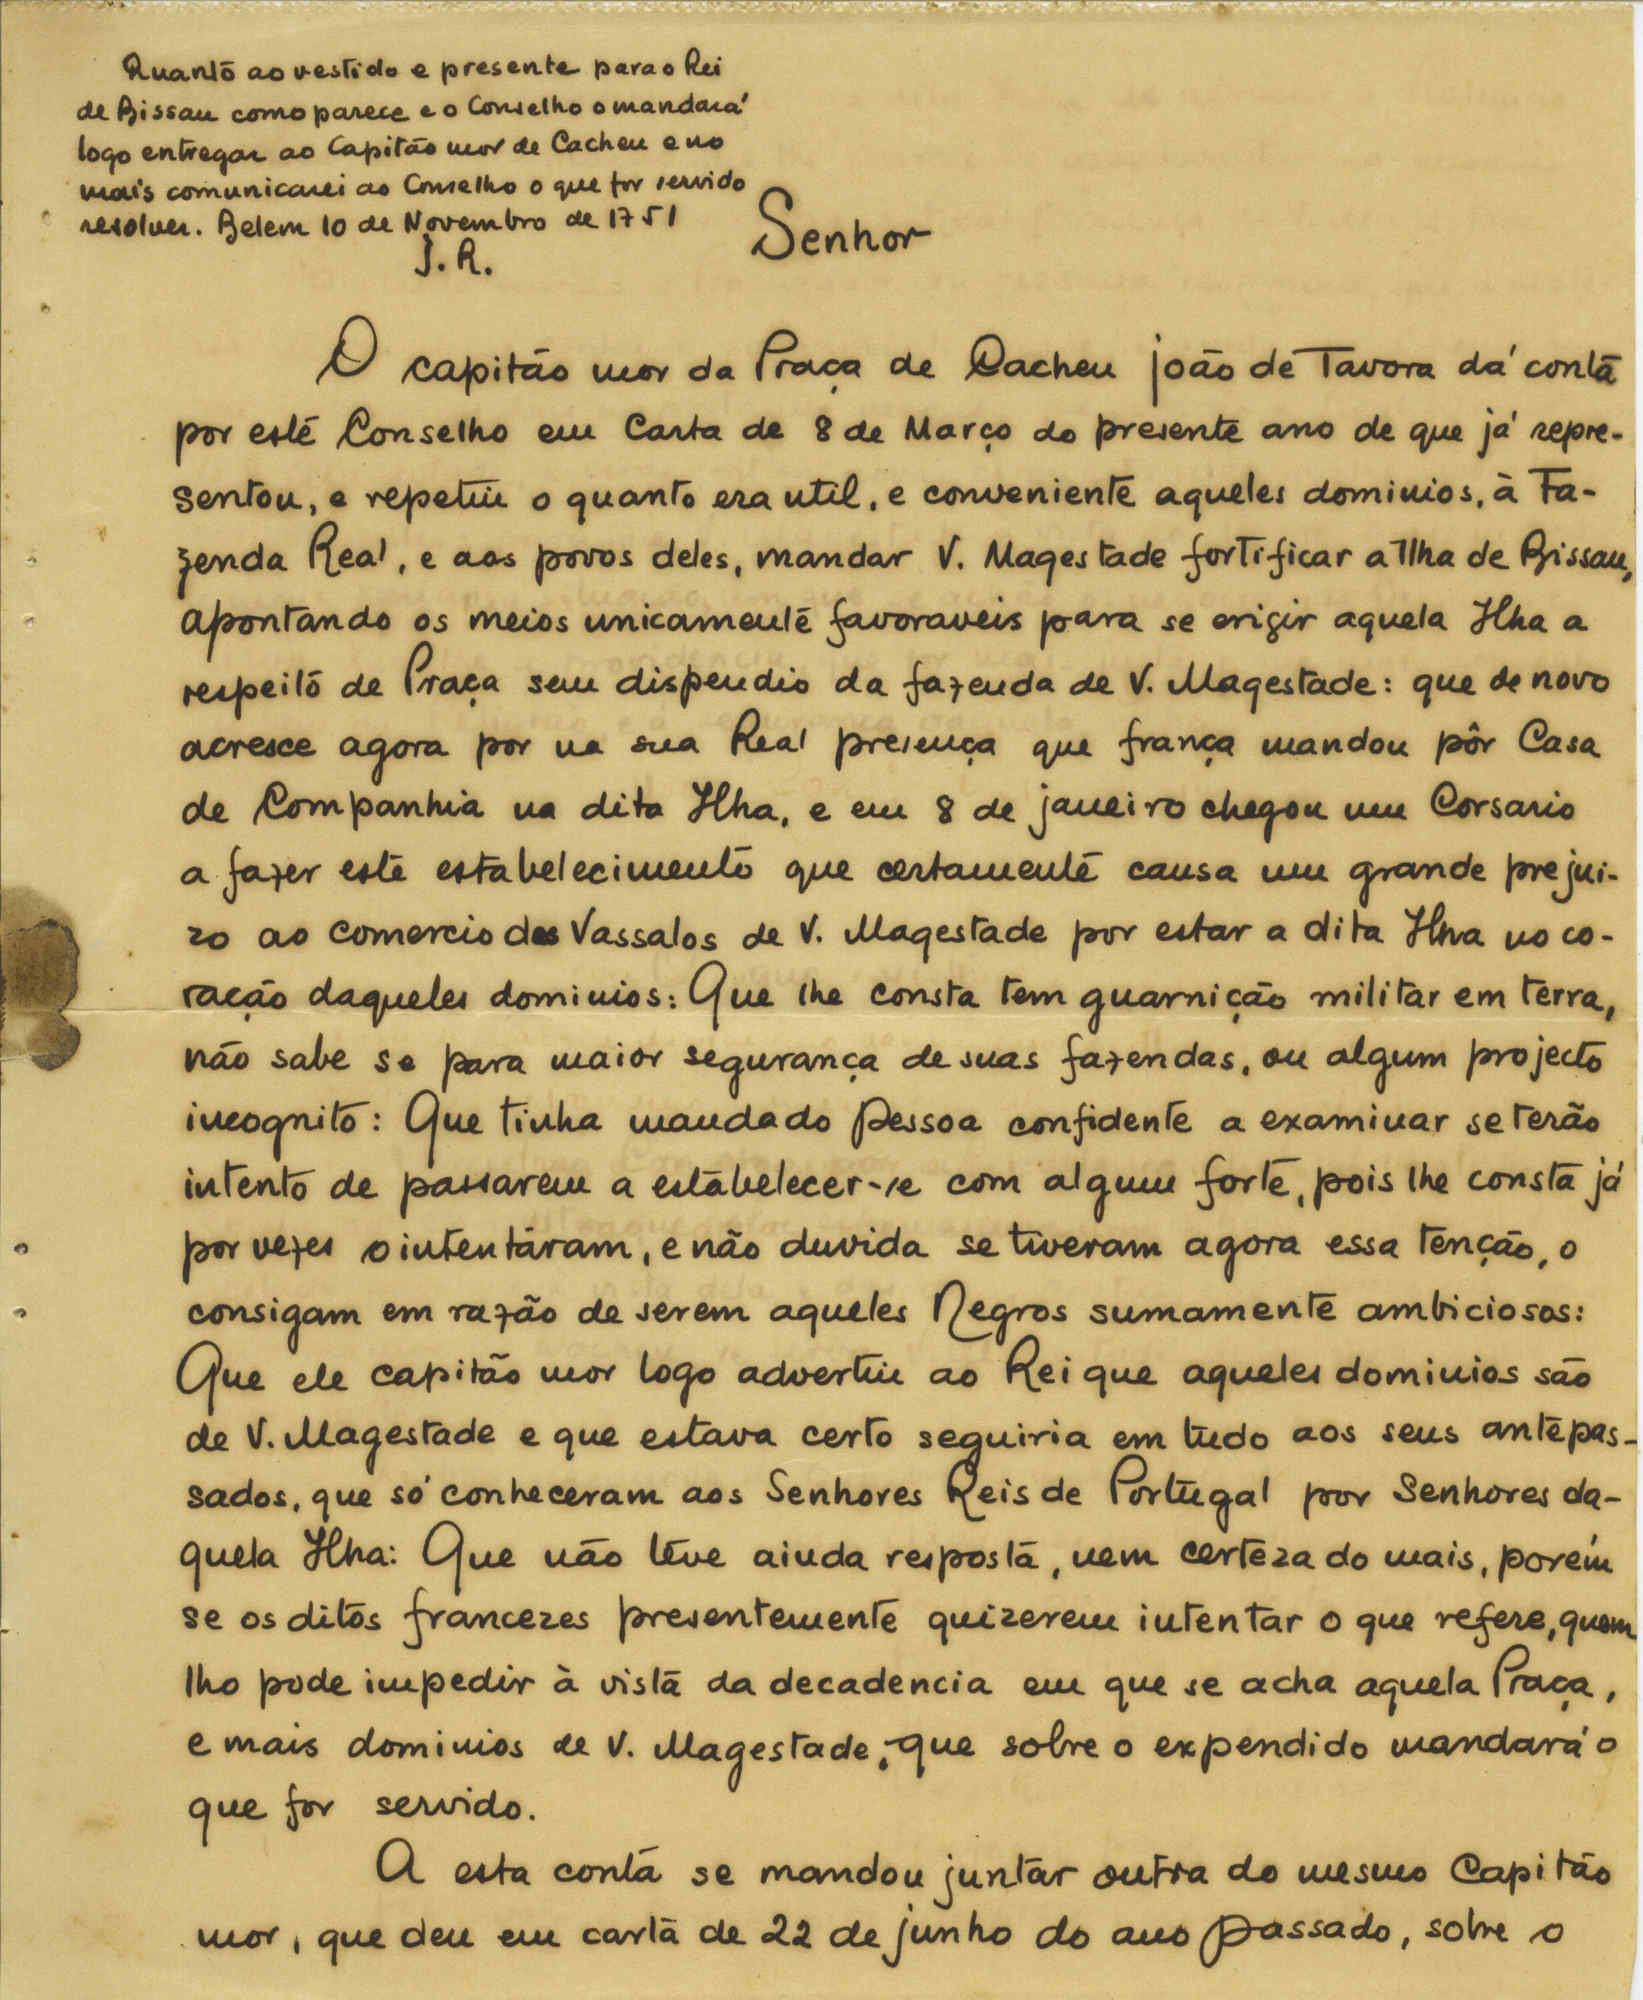 Quanto ao vestido e presente para o Rei
de Bissau como parece e o Conselho o mandará
logo entregar ao Capitão mor de Cacheu e no
mais comunicarei ao Conselho o que for servido
resolver. Belem 10 de Novembro de 1751
J. R.
Senhor
O capitão mor da Praça de Cacheu João de Tavora dá conta
por este Conselho em Carta de 8 de Março do presente ano de que já repre-
sentou, e repetiu o quanto era util, e conveniente aqueles dominios, à Fa-
zenda Real, e aos povos deles, mandar V. Magestade fortificar a Ilha de Bissau,
apontando os meios unicamente favoraveis para se erigir aquela Ilha a
respeito de Praça sem dispendio da fazenda de V. Magestade: que de novo
acresce agora por na sua Real presença que frança mandou pôr Casa
de Companhia na dita Ilha, e em 8 de janeiro chegou um Corsario
a fazer este estabelecimento que certamente causa um grande prejui-
zo ao comercio dos Vassalos de V. Magestade por estar a dita Ilha no co-
ração daqueles dominios: Que lhe consta tem guarnição militar em terra,
não sabe se para maior segurança de suas fazendas, ou algum projecto
incognito: Que tinha mandado pessoa confidente a examinar se terão
intento de passarem a estabelecer-se com algum forte, pois lhe consta já
por vezes o intentáram, e não duvida se tiveram agora essa tenção, o
consigam em razão de serem aqueles Negros sumamente ambiciosos:
Que ele capitão mor logo advertiu ao Rei que aqueles dominios são
de V. Magestade e que estava certo seguiria em tudo aos seus antepas-
sados, que só conheceram aos Senhores Reis de Portugal por Senhores da-
quela Ilha: Que não teve ainda resposta, nem certeza do mais, porém
se os ditos francezes presentemente quizerem intentar o que refere, quem
lho pode impedir à vista da decadencia em que se acha aquela Praça,
e mais dominios de V. Magestade, que sobre o expendido mandará o
que for servido.
A esta conta se mandou juntar outra do mesmo Capitão
mor, que deu em carta de 22 de junho do ano passado, sobre o